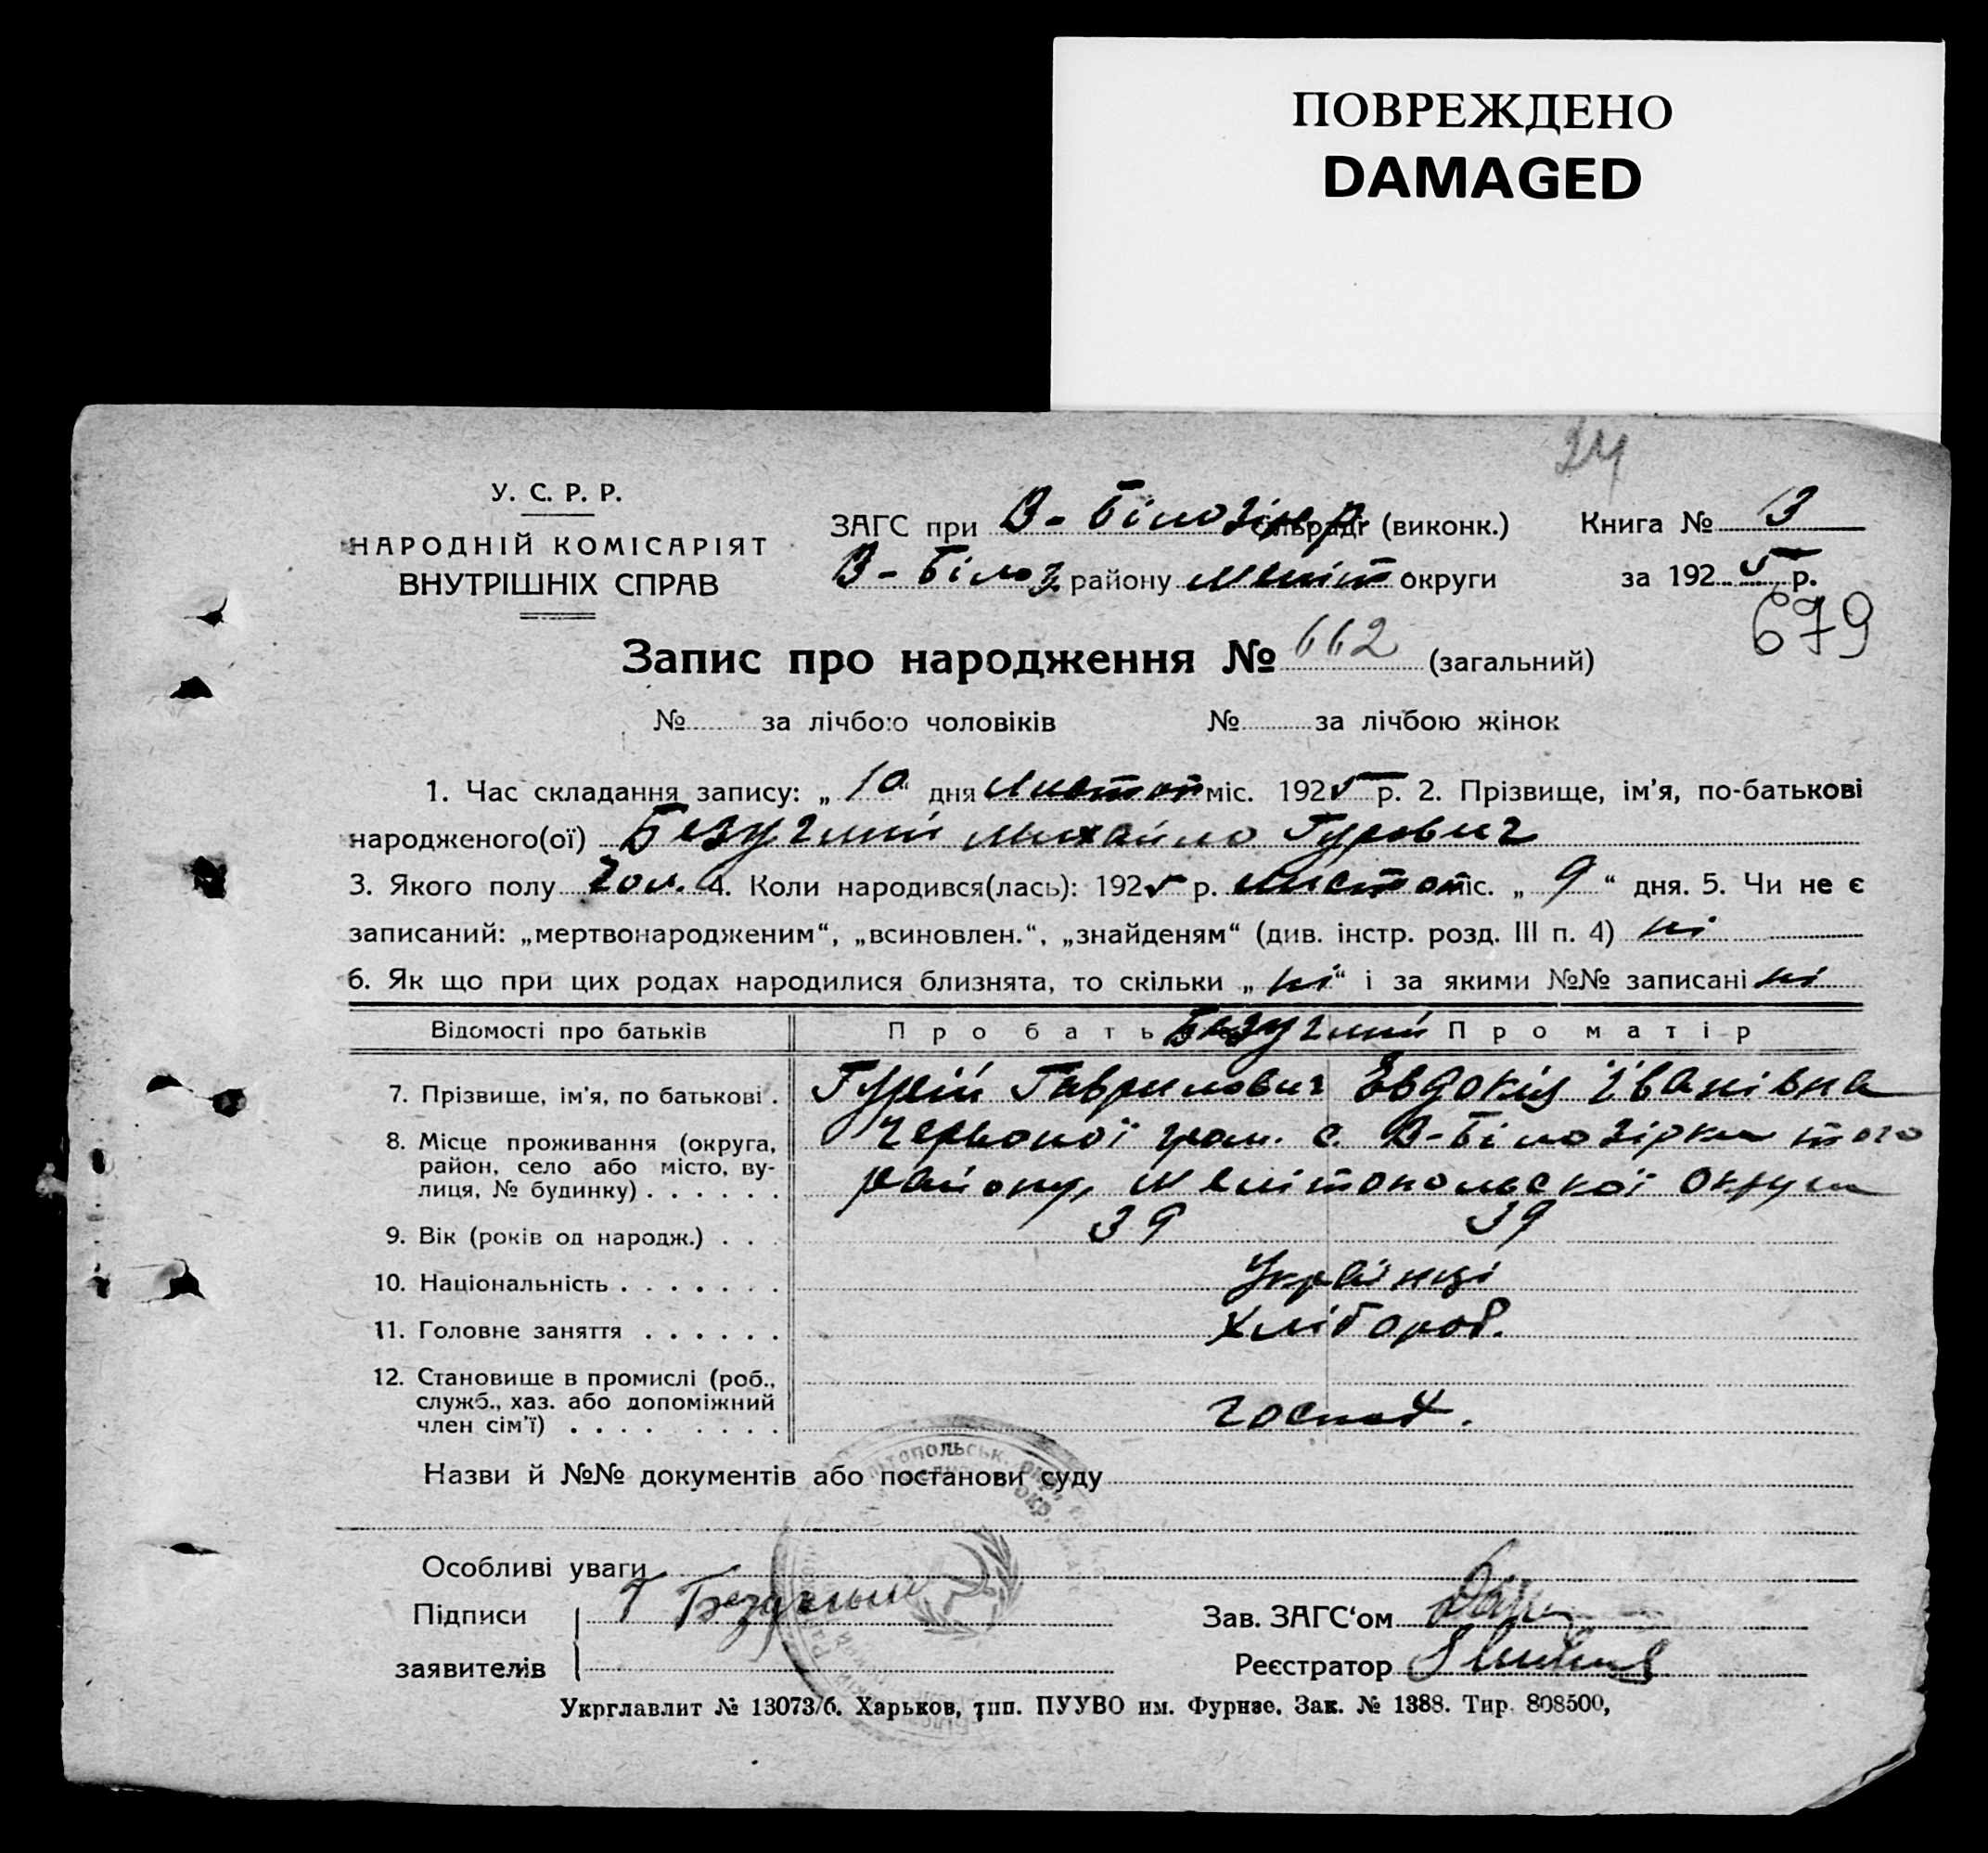 ПОВРЕЖДЕНО
DAMAGED
24
У. С. Р. Р.
НАРОДНІЙ КОМІСАРІЯТ
ВНУТРІШНІХ СПРАВ
ЗАГС при В-Білозір. сільраді (виконк.) Книга № 13
В-Білоз. району Меліт округи за 1925 р.
679
Запис про народження № 662 (загальний)
№ за лічбою чоловіків № за лічбою жінок
1. Час складання запису: „10" дня Листоп міс. 1925 р. 2. Прізвище, ім'я, по-батькові
народженого(ої) Безуглий Михайло Гурович
3. Якого полу чол. 4. Коли народився(лась): 1925 р. листоп міс. „9" дня. 5. Чи не є
записаний: „мертвонародженим", „всиновлен.", „знайденям" (див. інстр. розд. III п. 4) ні
6. Як що при цих родах народилися близнята, то скільки „ні" і за якими №№ записані ні
Відомості про батьків Про бать Безуглий Про матір
7. Прізвище, ім'я, по батькові. Гурій Гаврилович Евдокія Іванівна
8. Місце проживання (округа, Червоної гром. с. В-Білозірки того
район, село або місто, ву-
лиця, № будинку) . . . . . . району, Мелітопольської округи
9. Вік (років од народж.) . . . 39 39
10. Національність . . . . . . . Українці
11. Головне заняття . . . . . . Хлібороб.
12. Становище в промислі (роб.,
служб., хаз. або допоміжний
член сім'ї) . . . . . . . . господ.
Назви й №№ документів або постанови суду
Особливі уваги
Підписи Г Безуглий Зав. ЗАГС'ом
заявителів Реєстратор
Укрглавлит № 13073/б. Харьков, тип. ПУУВО им. Фурнзе. Зак. № 1388. Тир. 808500,